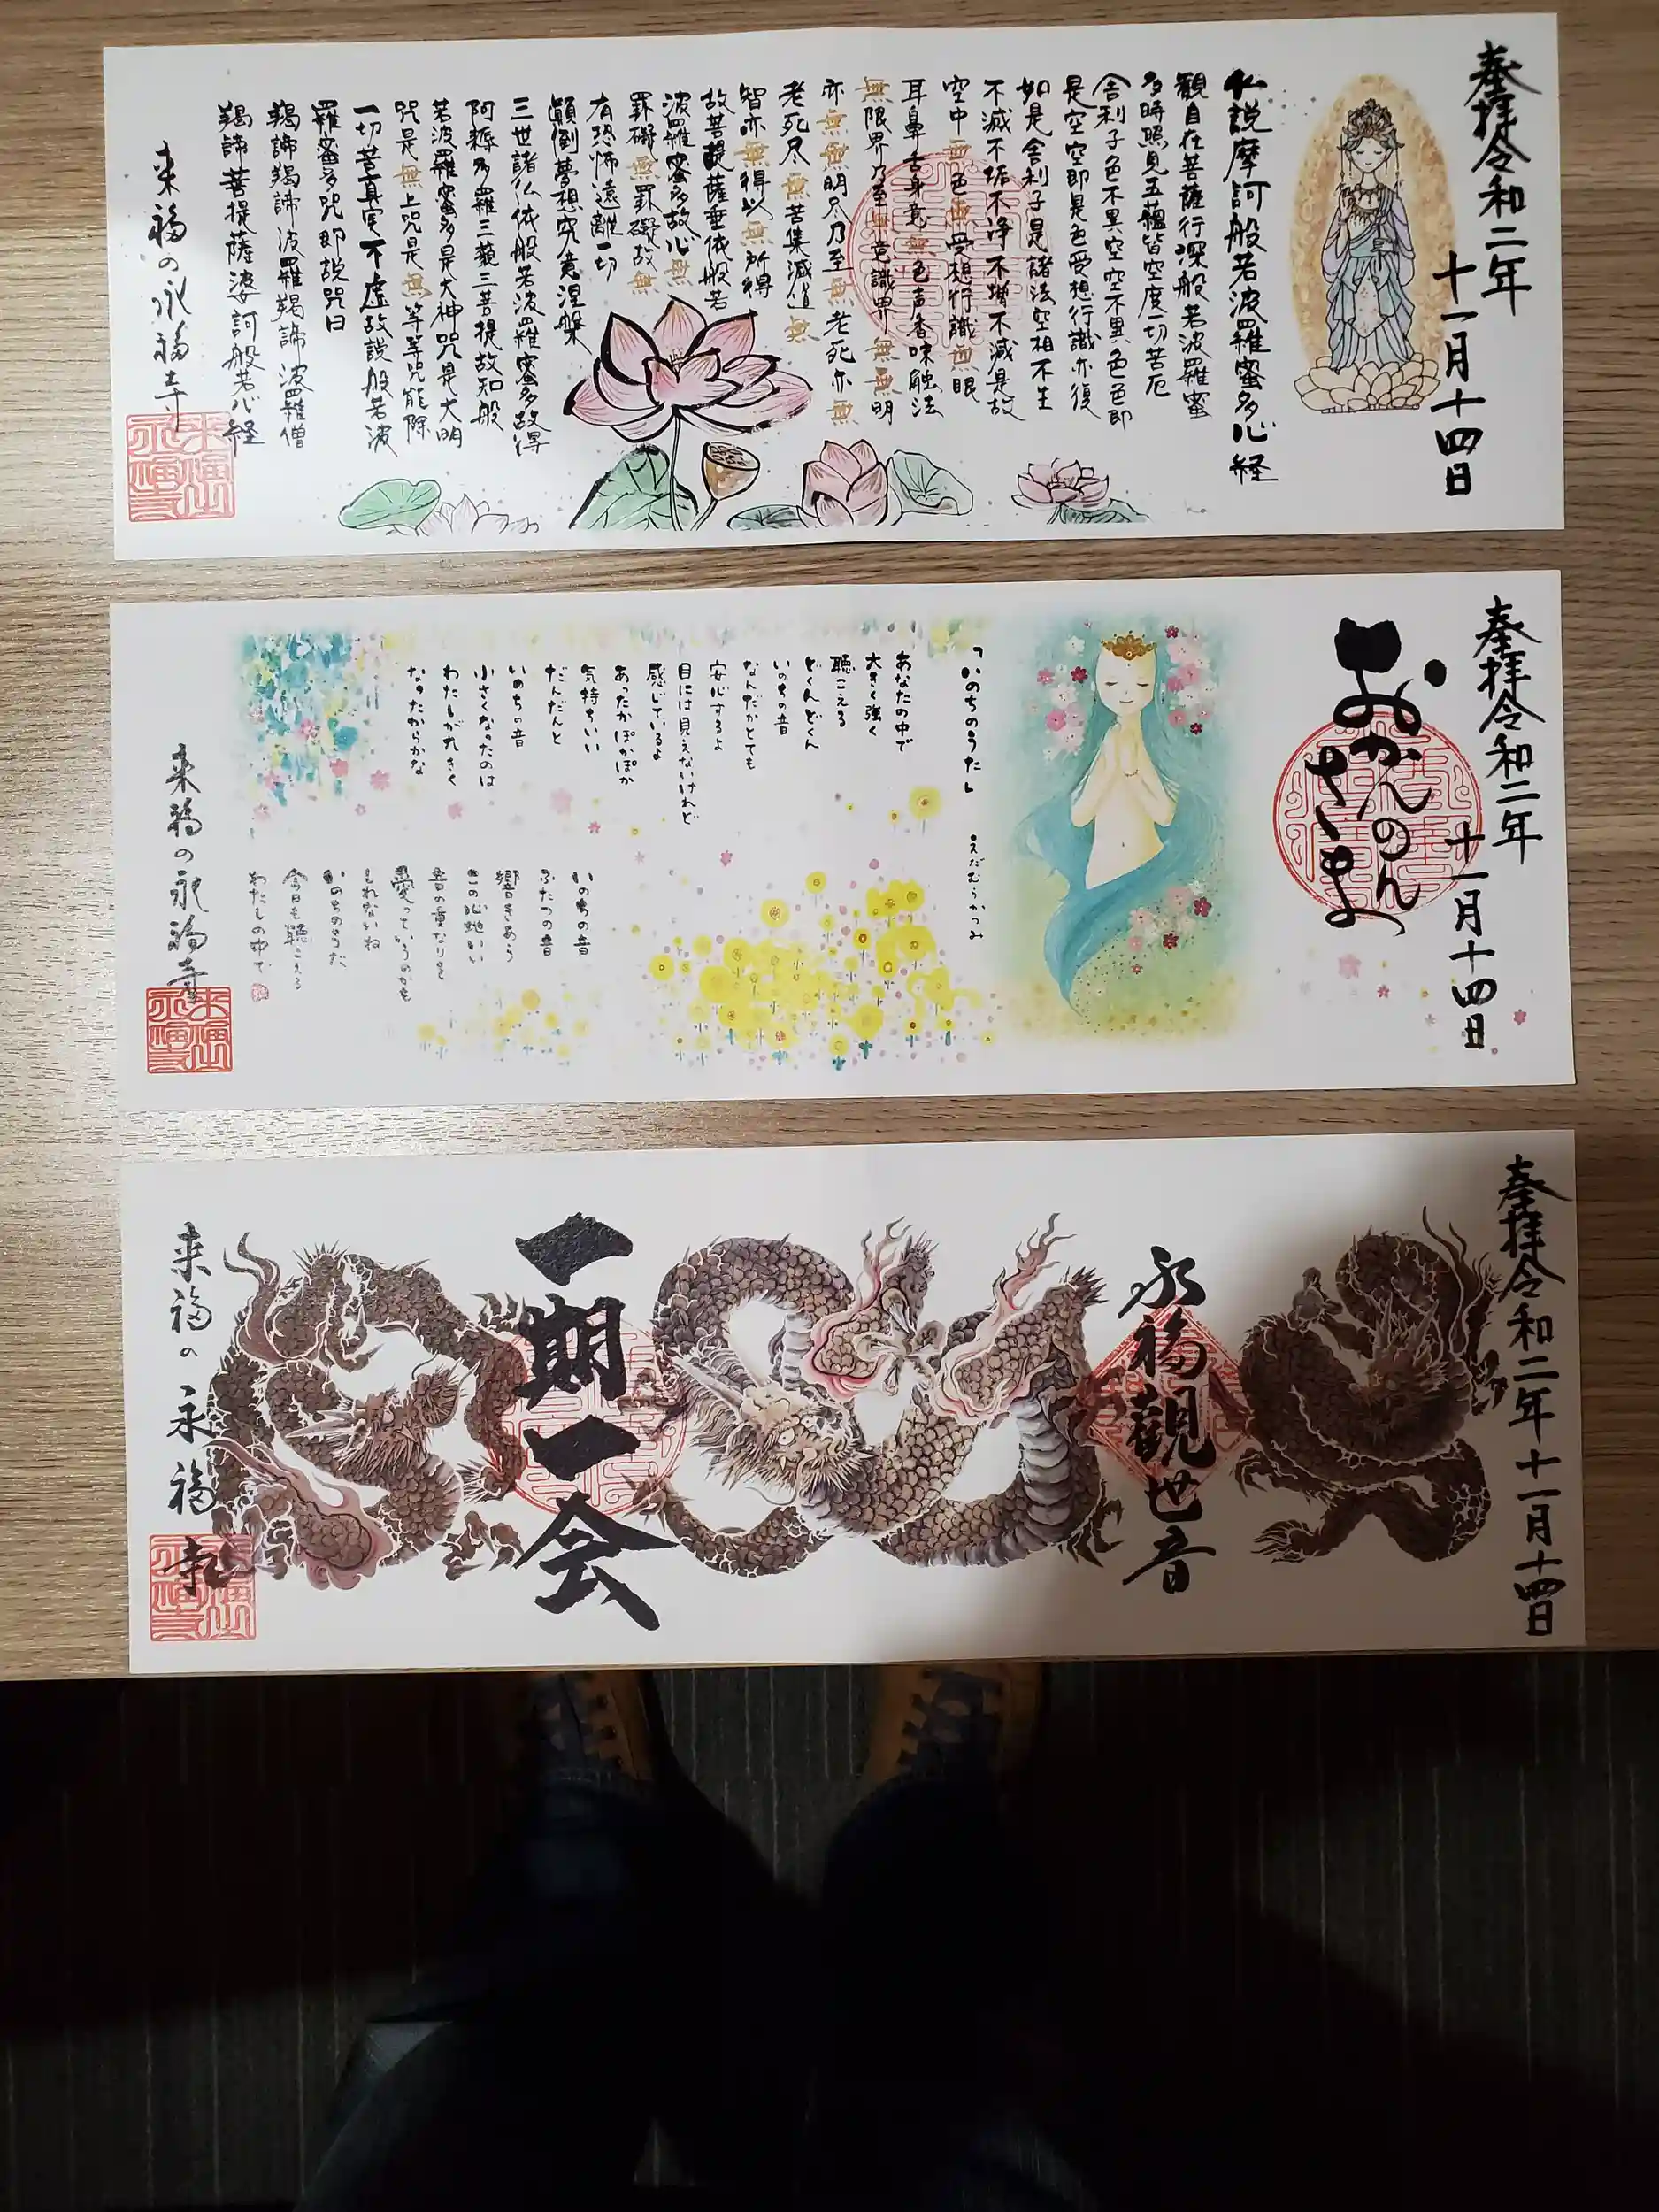 奉拝令和二年
十一月十四日
仏説摩訶般若波羅蜜多心経
観自在菩薩行深般若波羅蜜
多時照見五蘊皆空度一切苦厄
舎利子色不異空空不異色色即
是空空即是色受想行識亦復
如是舎利子是諸法空相不生
不滅不垢不浄不増不減是故
空中無色無受想行識無眼
耳鼻舌身意無色声香味触法
無限界乃至無意識界無無明
亦無無明尽乃至無老死亦無
老死尽無苦集滅道無
智亦無得以無所得
故菩提薩埵依般若
波羅蜜多故心無
罣礙無罣礙故無
有恐怖遠離一切
顛倒夢想究竟涅槃
三世諸仏依般若波羅蜜多故得
阿耨多羅三藐三菩提故知般
若波羅蜜多是大神咒是大明
咒是無上咒是無等等咒能除
一切苦真実不虚故説般若波
羅蜜多咒即説咒曰
羯諦羯諦波羅羯諦波羅僧
羯諦菩提薩婆訶般若心経
来福の永福寺
奉拝令和二年
十一月十四日
おかんのん
さま
「いのちのうた」
えだむらかつみ
あなたの中で
大きく強く
聴こえる
どくんどくん
いのちの音
なんだかとても
安心するよ
目には見えないけれど
感じているよ
あったかぽかぽか
気持ちいい
だんだんと
いのちの音
小さくなったのは
わたしがおおきく
なったからかな
いのちの音
ふたつの音
響きあう
この心地いい
音の重なりを
愛っていうのかも
しれないね
いのちのうた
今日も聴こえる
わたしの中で
来福の永福寺
奉拝令和二年十一月十四日
永福観世音
一期一会
来福の永福寺